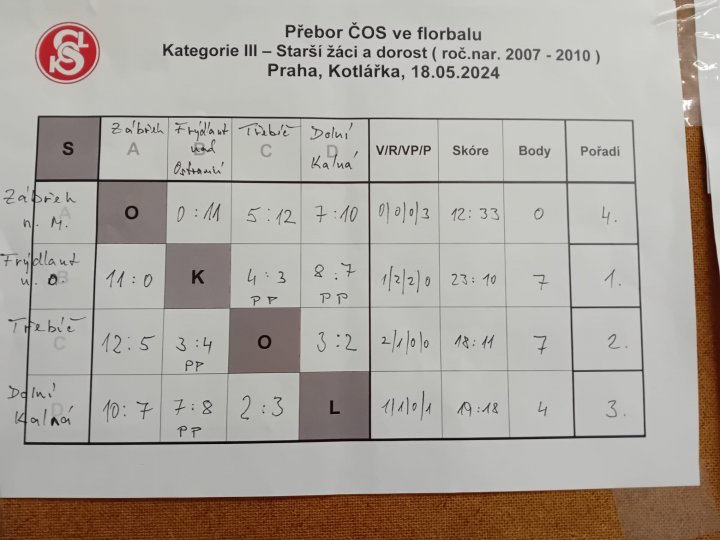 SOKOL
Přebor ČOS ve florbalu
Kategorie III – Starší žáci a dorost ( roč.nar. 2007 - 2010 )
Praha, Kotlářka, 18.05.2024
S Zábřeh A Frýdlant nad Ostravicí B Třebíč C Dolní Kalná D V/R/VP/P Skóre Body Pořadí
Zábřeh n. M. A O 0:11 5:12 7:10 0/0/0/3 12:33 0 4.
Frýdlant n. O. B 11:0 K 4:3 PP 8:7 PP 1/2/2/0 23:10 7 1.
Třebíč C 12:5 3:4 PP O 3:2 2/1/0/0 18:11 7 2.
Dolní Kalná D 10:7 7:8 PP 2:3 L 1/1/0/1 19:18 4 3.